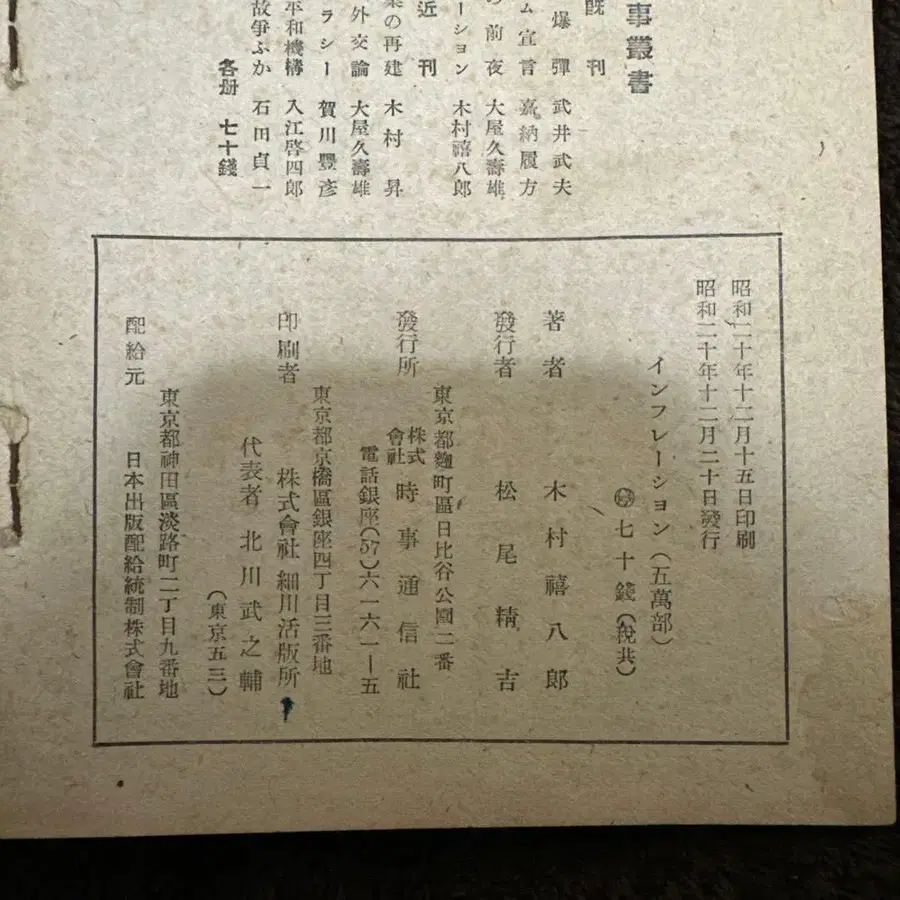 事叢書
既刊
爆彈 武井武夫
ム宣言 嘉納履方
の前夜 大屋久壽雄
ーション 木村禧八郎
近刊
業の再建 木村昇
外交論 大屋久壽雄
ラシー 賀川豐彦
平和機構 入江啓四郎
故爭ふか 石田貞一
各册 七十錢
昭和二十年十二月十五日印刷
昭和二十年十二月二十日發行
インフレーション(五萬部)
七十錢(稅共)
著者 木村禧八郎
發行者 松尾精吉
東京都麴町區日比谷公園二番
發行所 株式會社 時事通信社
電話銀座(57)六一六一―五
東京都京橋區銀座四丁目三番地
印刷者 株式會社 細川活版所
代表者 北川武之輔
(東京五三)
東京都神田區淡路町二丁目九番地
配給元 日本出版配給統制株式會社